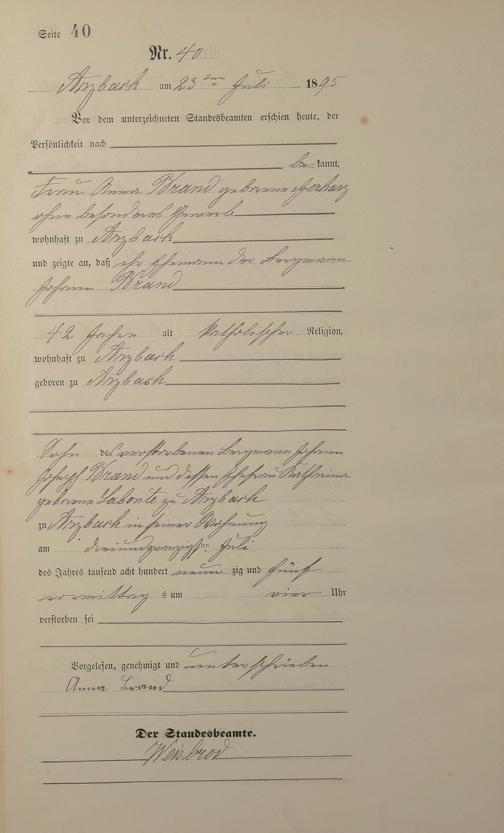 Seite 40
Nr. 40
Arzbach am 23ten Juli 1895
Vor dem unterzeichneten Standesbeamten erschien heute, der
Persönlichkeit nach
be kannt,
Frau Anna Brand geborene
ohne besonderes Gewerb
wohnhaft zu Arzbach
und zeigte an, daß ihr Ehemann der Bergmann
Johann Brand
42 Jahre alt katholischer Religion,
wohnhaft zu Arzbach
geboren zu Arzbach
Sohn des verstorbenen Bergmann Johann
Joseph Brand und dessen Ehefrau Katharina
geborene Labonte zu Arzbach
zu Arzbach in seiner Wohnung
am dreiundzwanzigsten Juli
des Jahres tausend acht hundert neun zig und fünf
vormittag s um vier Uhr
verstorben sei
Vorgelesen, genehmigt und unterschrieben
Anna Brand
Der Standesbeamte.
Weisbrod